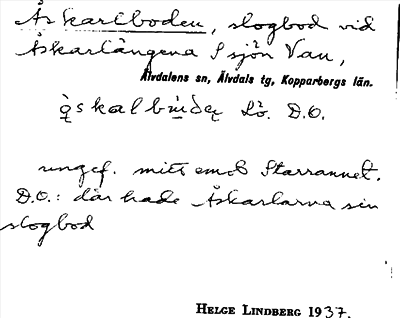 Åskarlboden, slogbod vid
Åskarlängena I sjön Van,
Älvdalens sn, Älvdals tg, Kopparbergs län.
Lö. D.O.
ungef. mitt emot Starrannet.
D.O.: där hade Åskarlarna sin
slogbod
HELGE LINDBERG 1937.